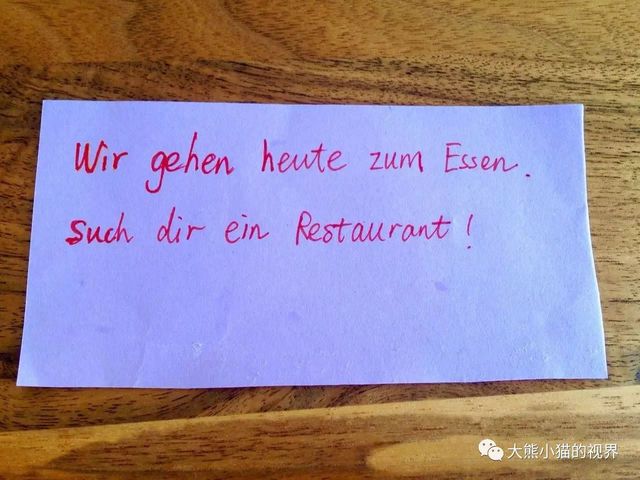 Wir gehen heute zum Essen.
Such dir ein Restaurant!
大熊小猫的视界